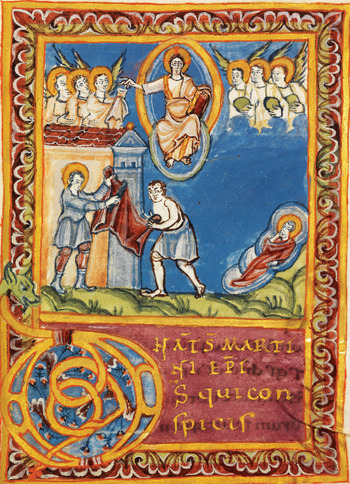 NAT̄ S̄ MARTI
NI EP̄I
DS̄ quicon
spicis